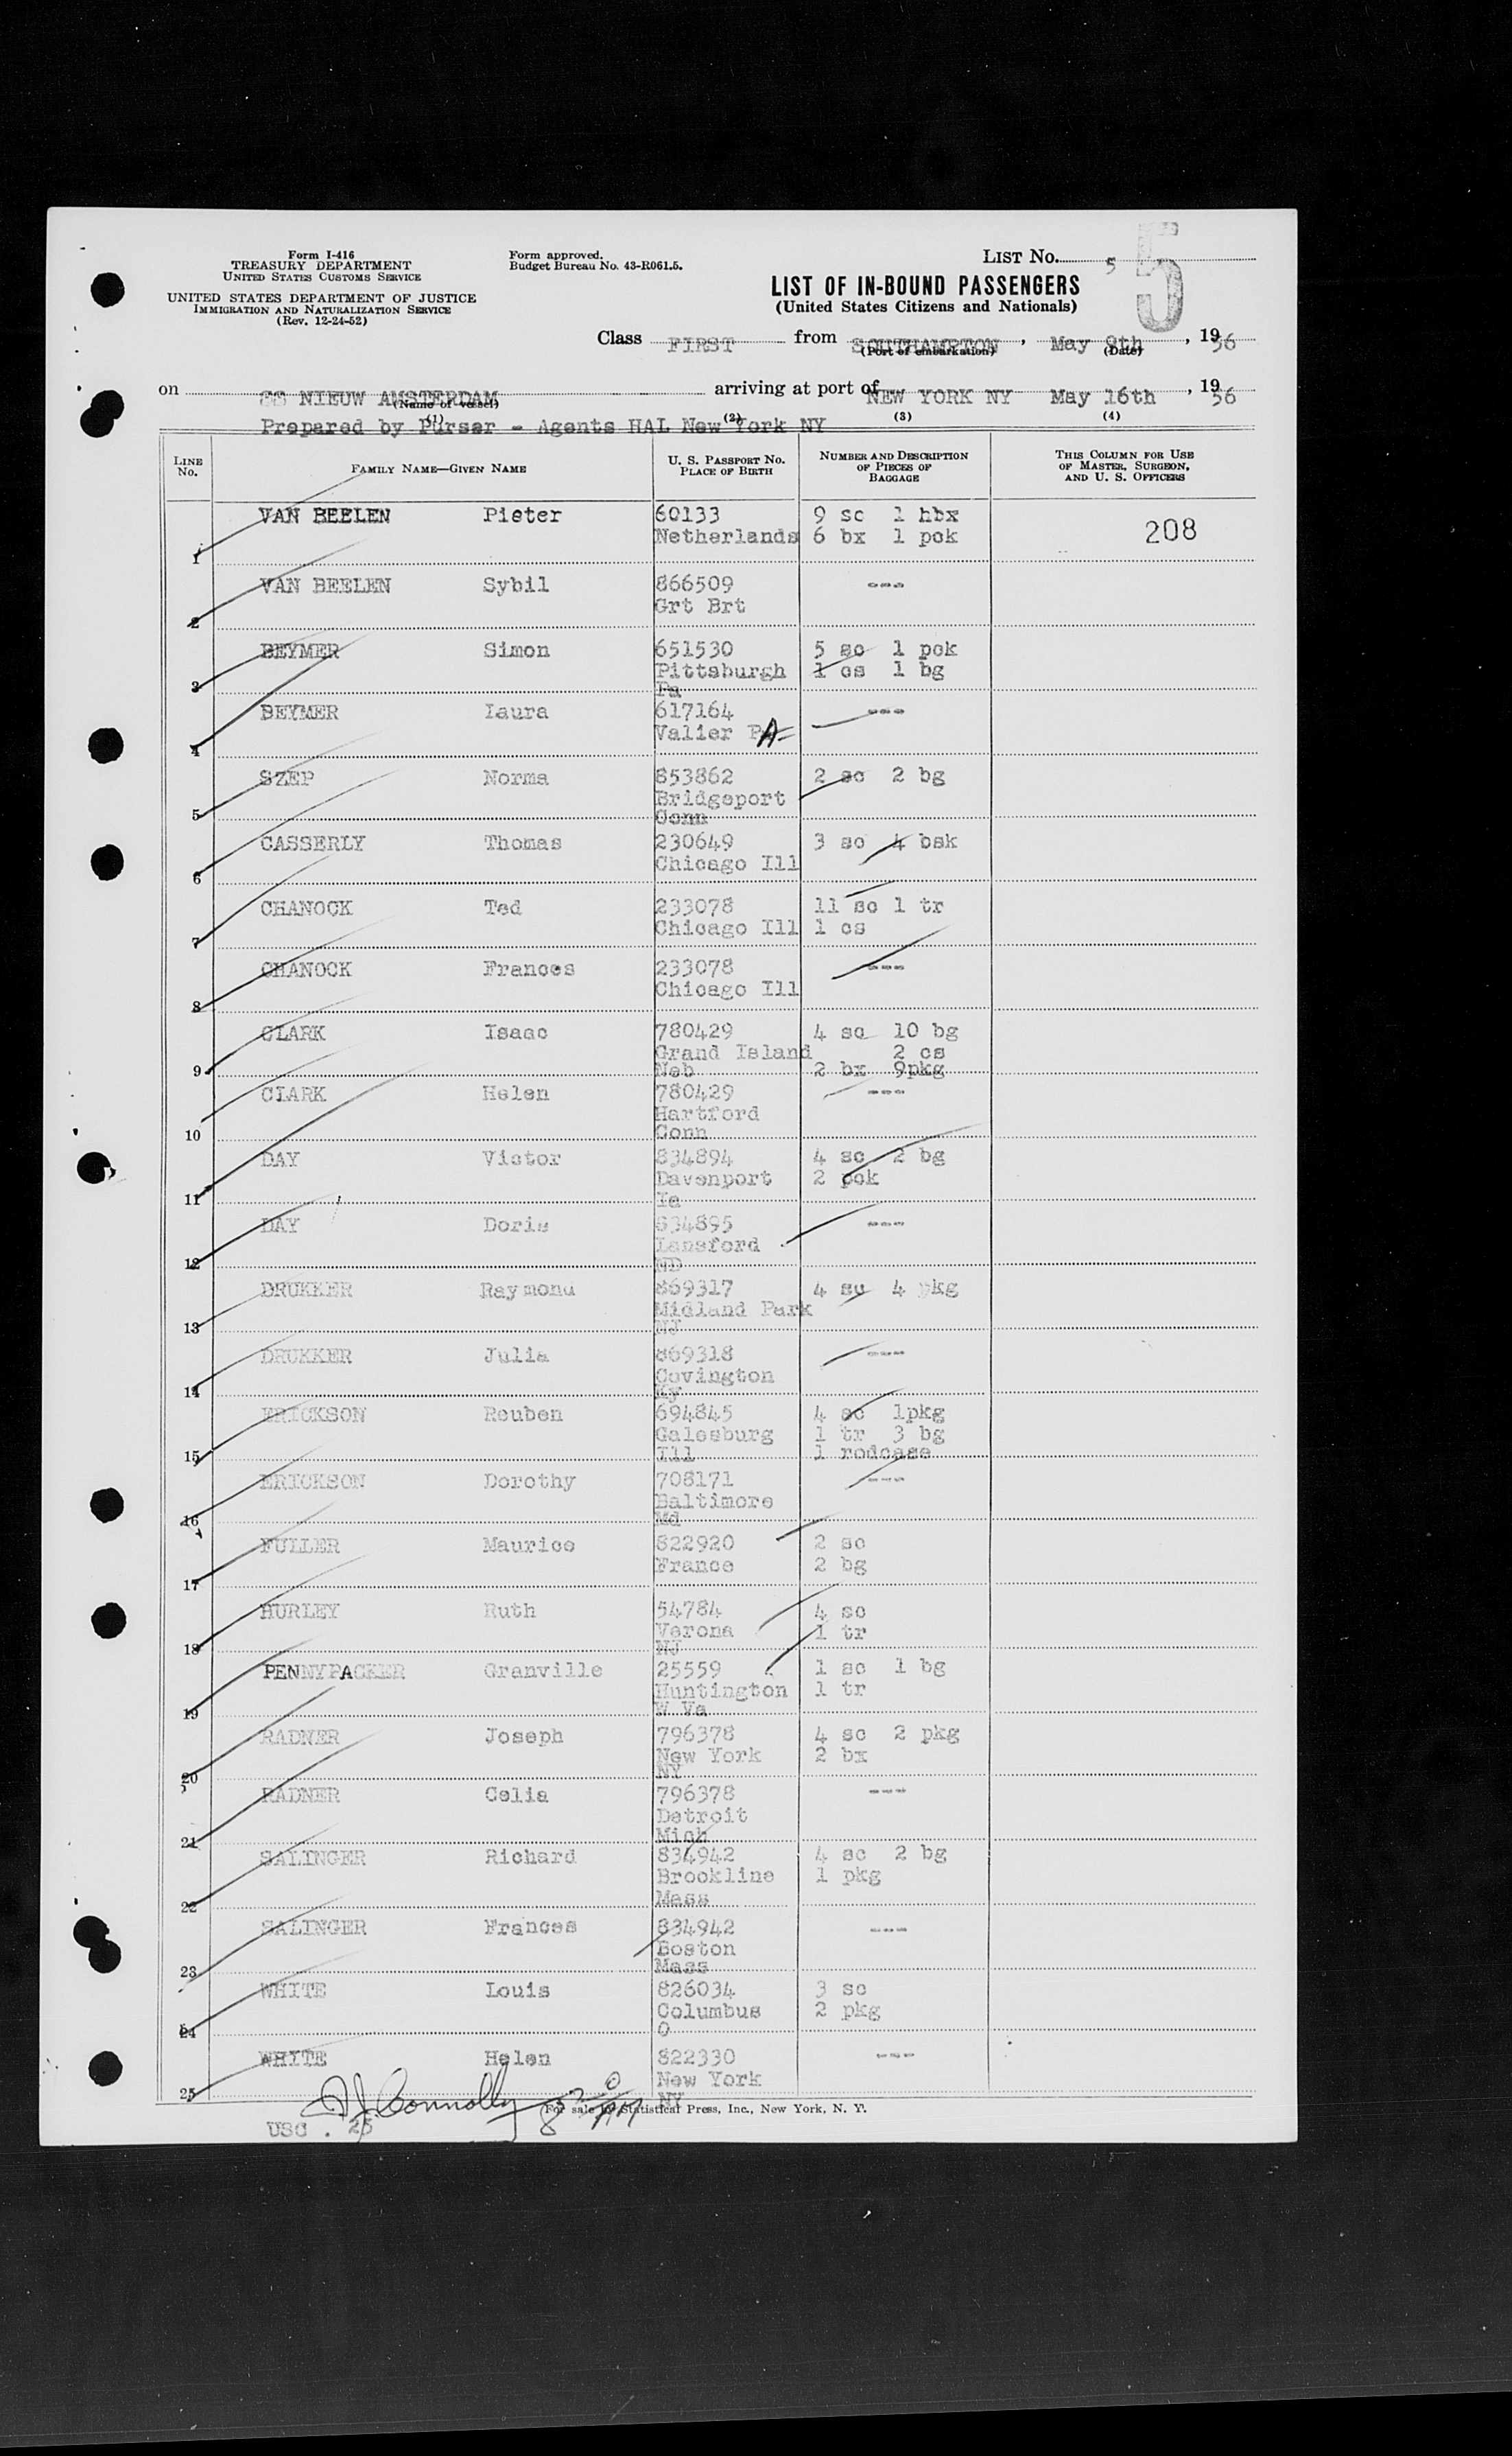 Form I-416
TREASURY DEPARTMENT
UNITED STATES CUSTOMS SERVICE
UNITED STATES DEPARTMENT OF JUSTICE
IMMIGRATION AND NATURALIZATION SERVICE
(Rev. 12-24-52)
Form approved.
Budget Bureau No. 43-R061.5.
LIST NO. 5
5
LIST OF IN-BOUND PASSENGERS
(United States Citizens and Nationals)
Class FIRST from SOUTHAMPTON, May 9th, 1956
(Port of embarkation) (Date)
on SS NIEUW AMSTERDAM arriving at port of NEW YORK NY May 16th, 1956
(Name of vessel)
(1) (2) (3) (4)
Prepared by Purser - Agents HAL New York NY
LINE No. FAMILY NAME—GIVEN NAME U. S. PASSPORT NO. PLACE OF BIRTH NUMBER AND DESCRIPTION OF PIECES OF BAGGAGE THIS COLUMN FOR USE OF MASTER, SURGEON, AND U. S. OFFICERS
VAN BEELEN Pieter 60133 9 sc 1 hbx
Netherlands 6 bx 1 pck 208
1
VAN BEELEN Sybil 866509 ---
Grt Brt
2
BEYMER Simon 651530 5 sc 1 pck
Pittsburgh 1 cs 1 bg
3 Pa
BEYMER Laura 617164 ---
Valier PA
4
SZEP Norma 853862 2 sc 2 bg
Bridgeport
5 Conn
CASSERLY Thomas 230649 3 sc 4 bsk
Chicago Ill
6
CHANOCK Ted 233078 11 sc 1 tr
Chicago Ill 1 cs
7
CHANOCK Frances 233078 ---
Chicago Ill
8
CLARK Isaac 780429 4 sc 10 bg
Grand Island 2 cs
9 Neb 2 bx 9pkg
CLARK Helen 780429 ---
Hartford
10 Conn
DAY Victor 834894 4 sc 2 bg
Davenport 2 pck
11 Ia
DAY Doris 834895 ---
Lansford
12 ND
DRUKKER Raymond 869317 4 sc 4 pkg
Midland Park
13 NJ
DRUKKER Julia 869318 ---
Covington
14 Ky
ERICKSON Reuben 694845 4 sc 1pkg
Galesburg 1 tr 3 bg
15 Ill 1 rodcase
ERICKSON Dorothy 708171 ---
Baltimore
16 Md
FULLER Maurice 822920 2 sc
France 2 bg
17
HURLEY Ruth 54784 4 sc
Verona 1 tr
18 NJ
PENNYPACKER Granville 25559 1 sc 1 bg
Huntington 1 tr
19 W Va
RADNER Joseph 796378 4 sc 2 pkg
New York 2 bx
20 NY
RADNER Celia 796378 ---
Detroit
21 Mich
SALINGER Richard 834942 4 sc 2 bg
Brookline 1 pkg
22 Mass
SALINGER Frances 834942 ---
Boston
23 Mass
WHITE Louis 826034 3 sc
Columbus 2 pkg
24 O
WHITE Helen 822330 ---
New York
25 NY
Connolly
For sale by Statistical Press, Inc., New York, N. Y.
USC . 25